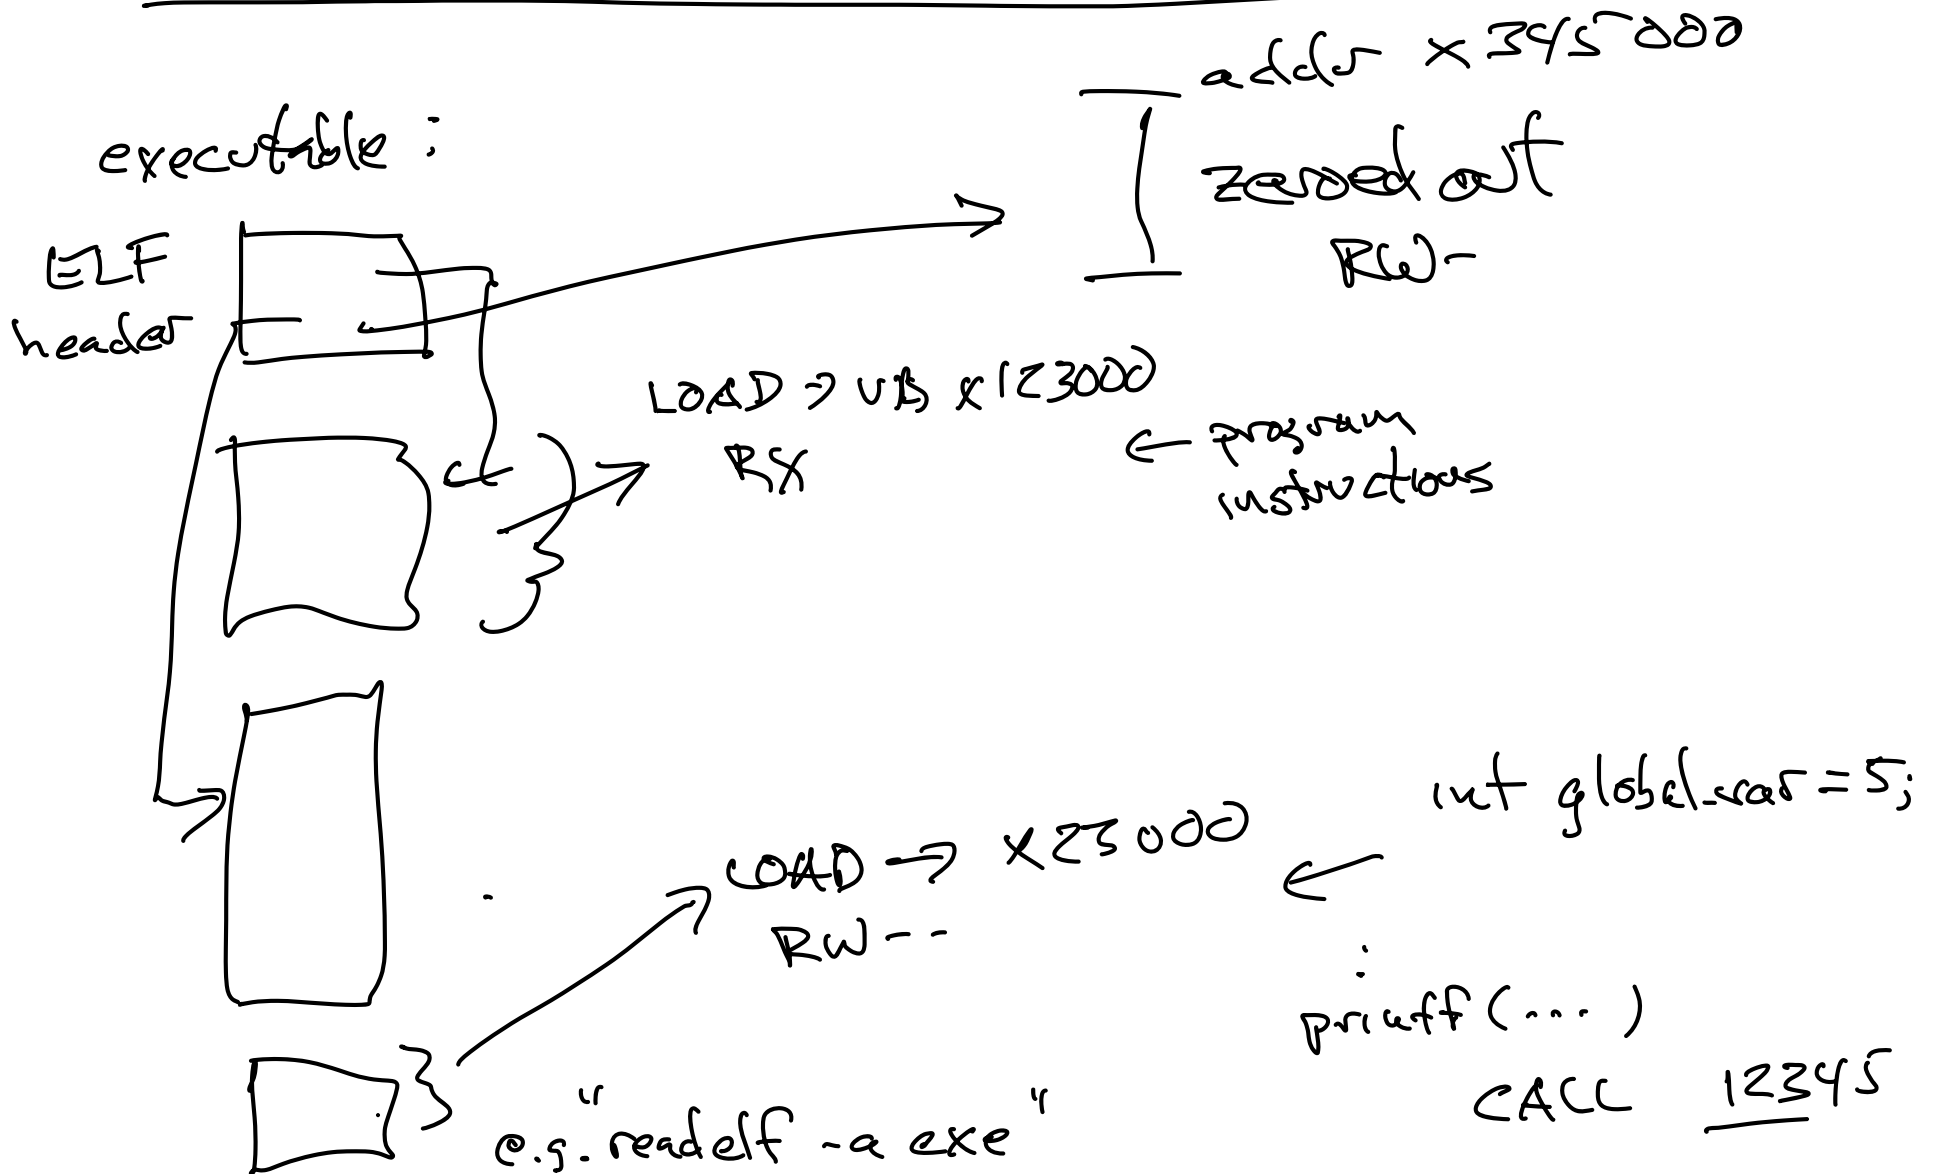 addr x345000
executable :
zeroed out
RW-
ELF
header
LOAD → VA x123000
RX
← program
instructions
int global_var = 5;
LOAD → x23000
RW--
printf(...)
CALL 12345
e.g. "readelf -a exe"